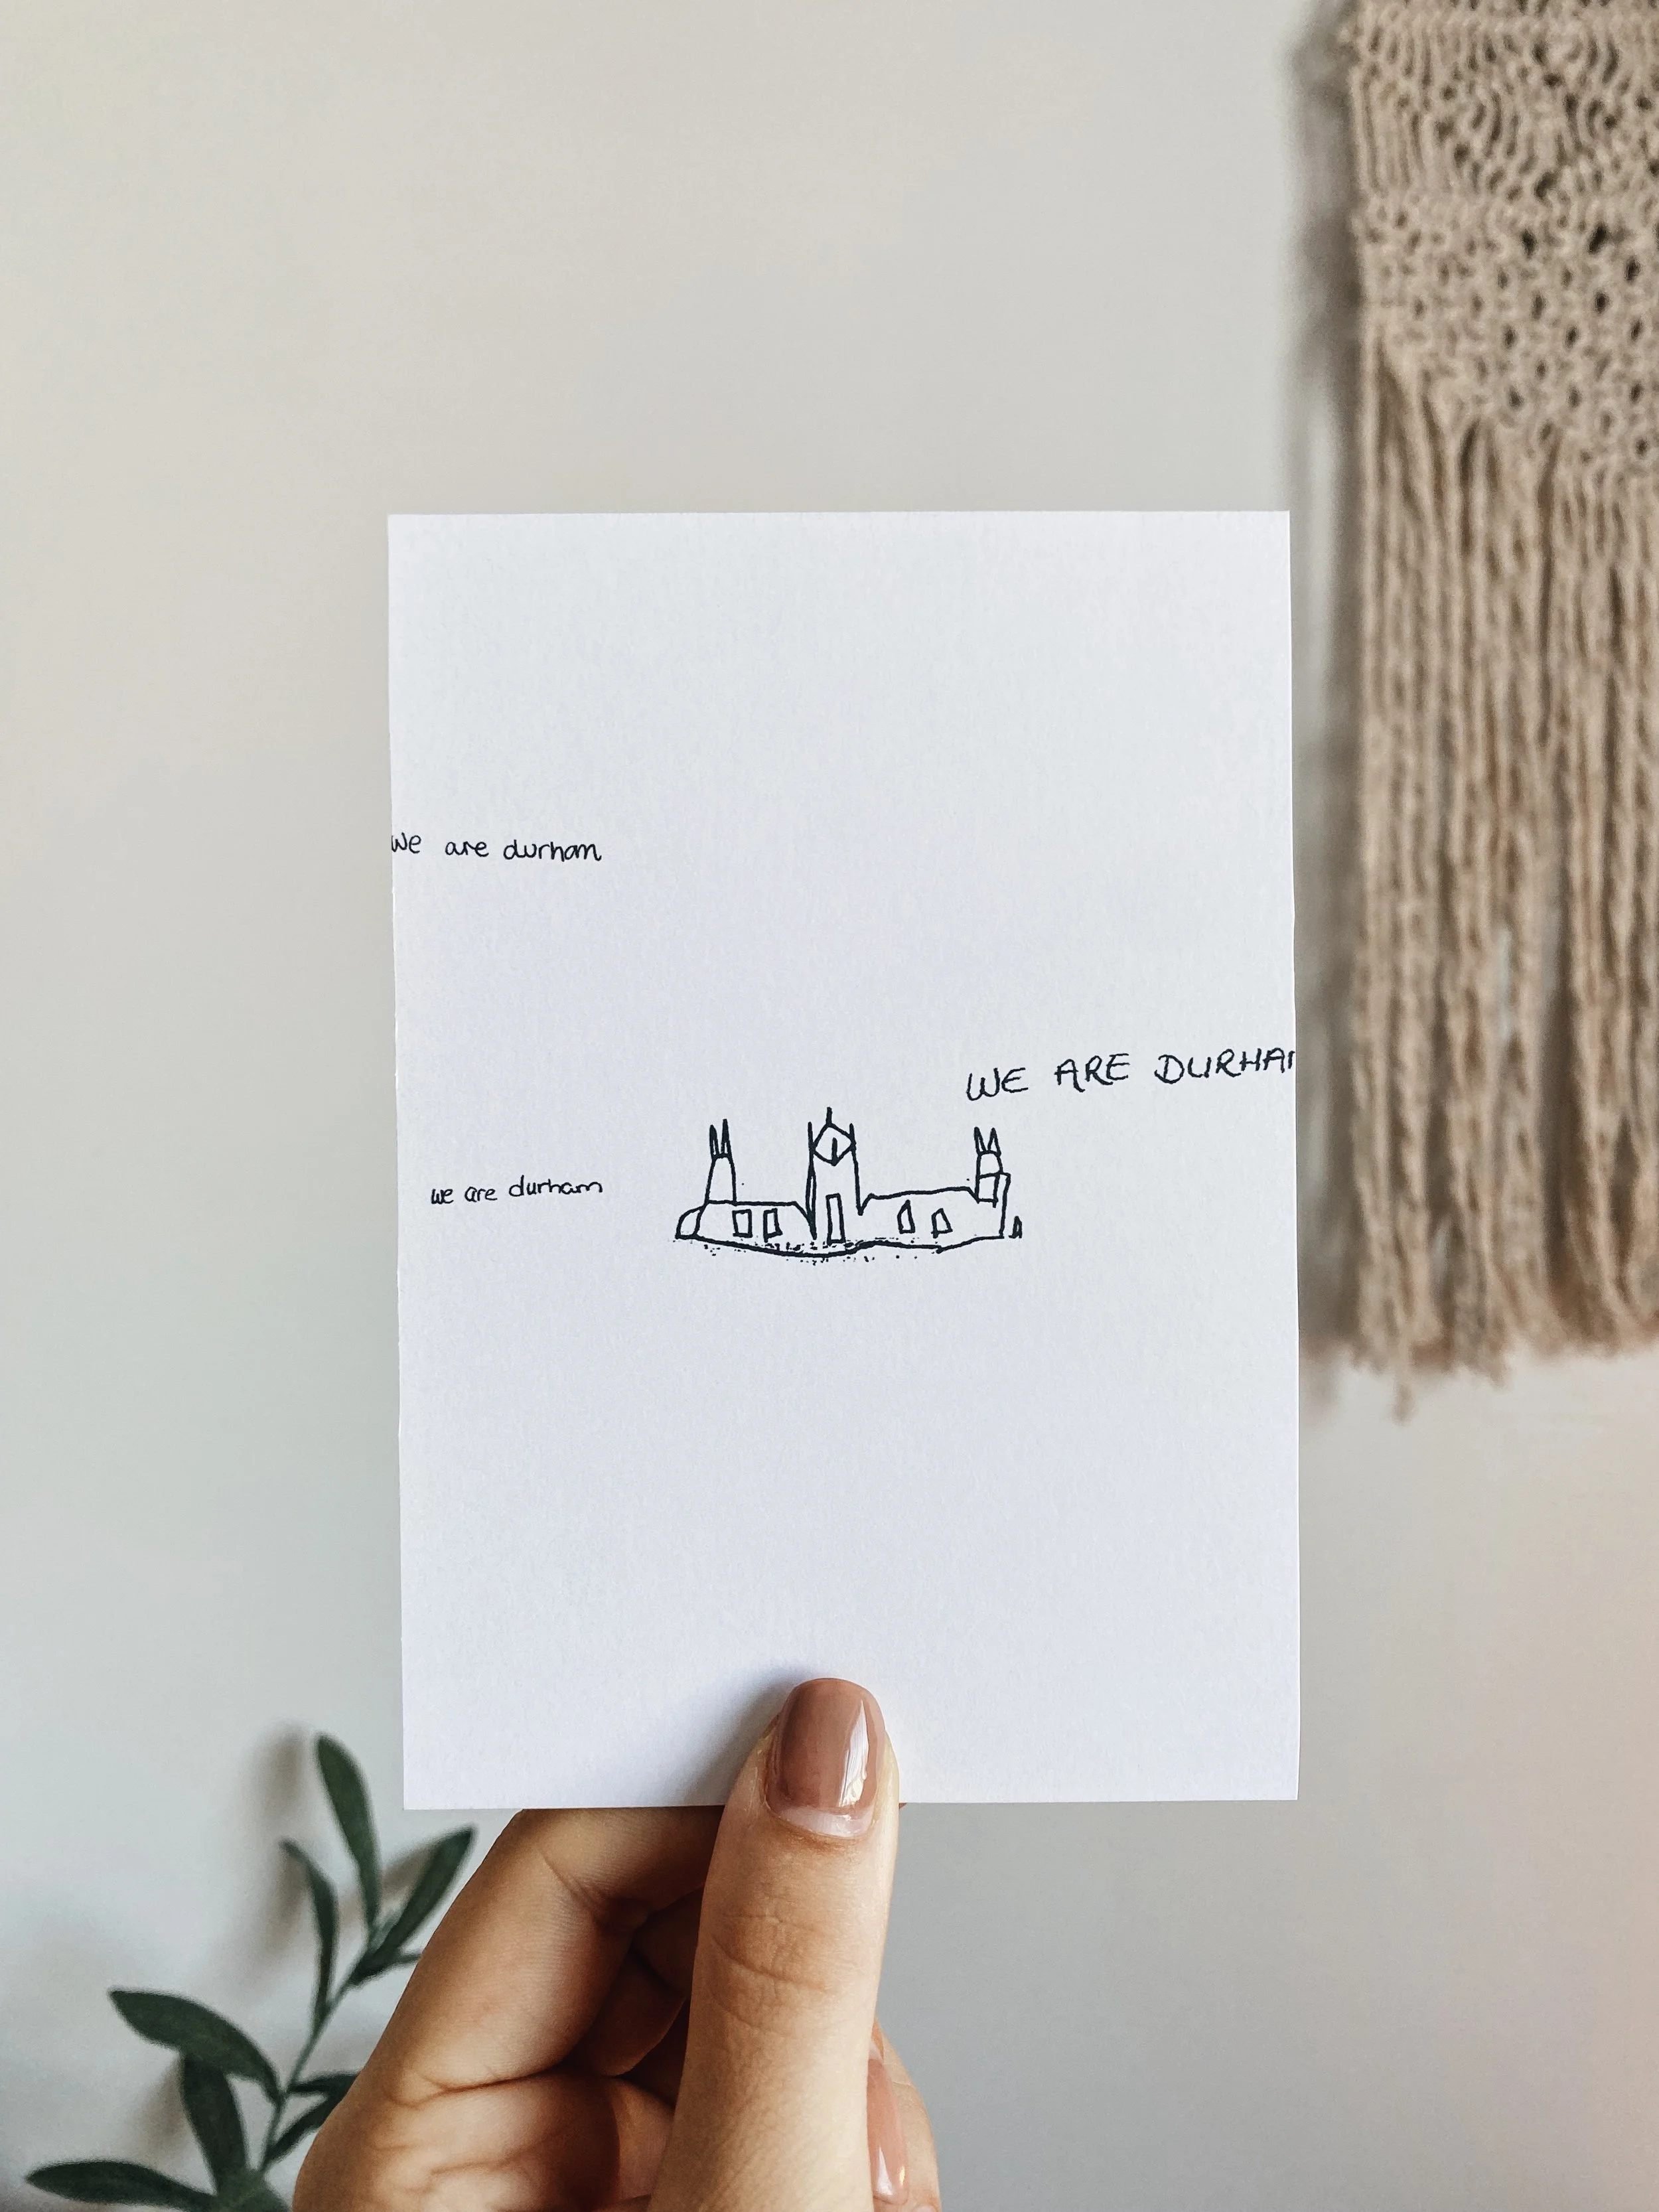 we are durham
WE ARE DURHA
we are durham